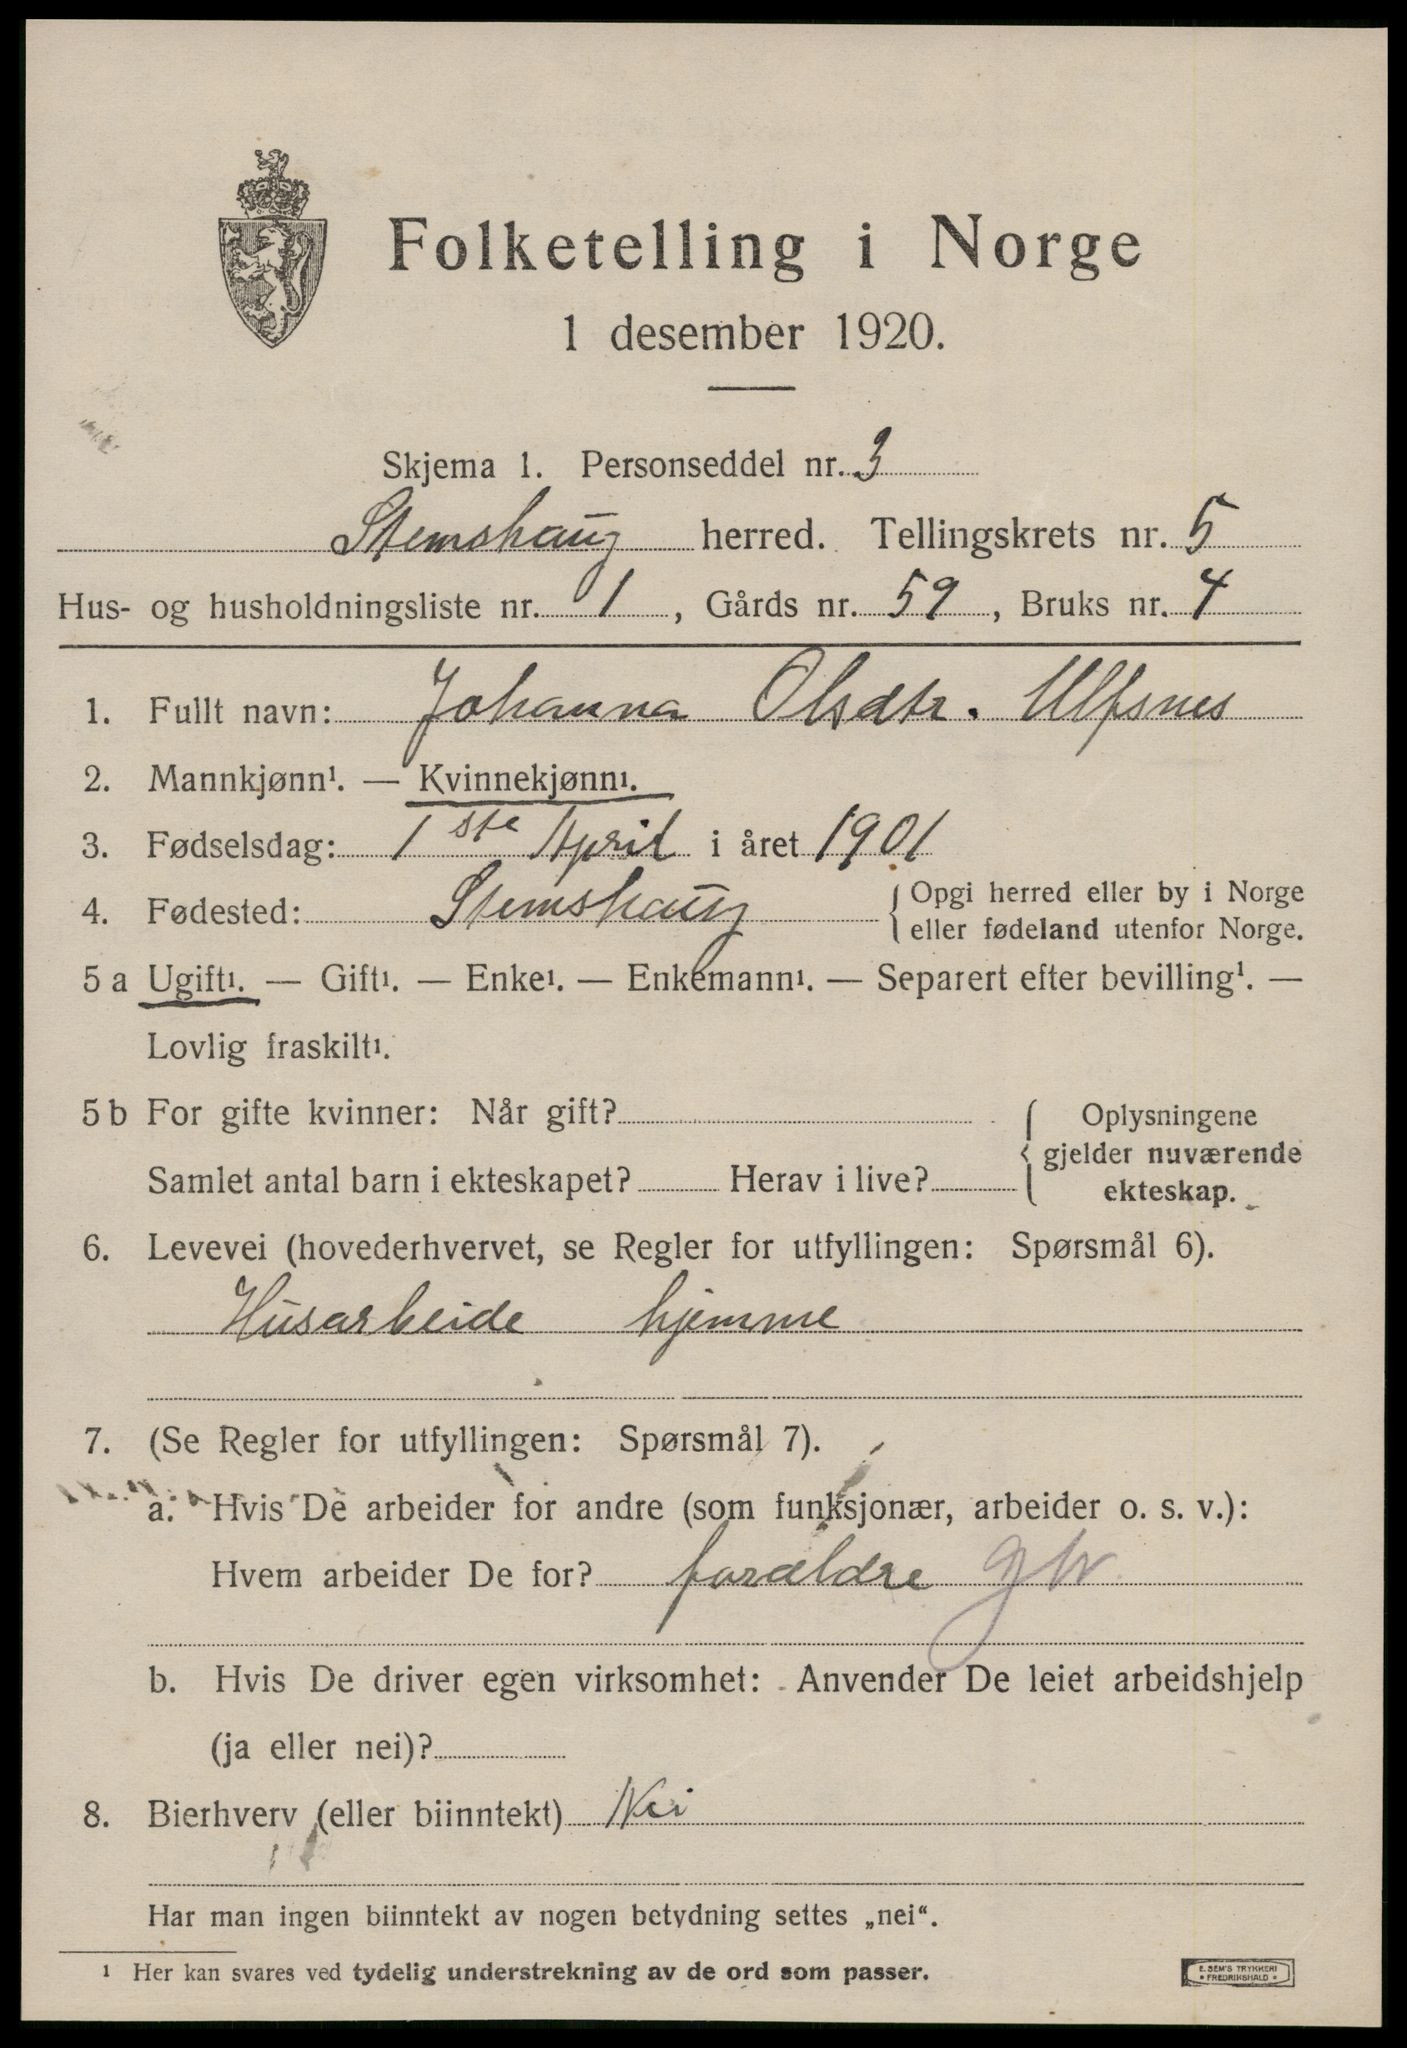 Folketelling i Norge
1 desember 1920.
Skjema 1. Personseddel nr. 3
Stemshaug herred. Tellingskrets nr. 5
Hus- og husholdningsliste nr. 1, Gårds nr. 59, Bruks nr. 4
1. Fullt navn: Johanna Olsdtr. Ulfsnes
2. Mannkjønn¹. — Kvinnekjønn¹.
3. Fødselsdag: 1ste April i året 1901
4. Fødested: Stemshaug { Opgi herred eller by i Norge
eller fødeland utenfor Norge.
5 a Ugift¹. — Gift¹. — Enke¹. — Enkemann¹. — Separert efter bevilling¹. —
Lovlig fraskilt¹.
5 b For gifte kvinner: Når gift?
Samlet antal barn i ekteskapet? Herav i live?
{ Oplysningene
gjelder nuværende
ekteskap.
6. Levevei (hovederhvervet, se Regler for utfyllingen: Spørsmål 6).
Husarbeide hjemme
7. (Se Regler for utfyllingen: Spørsmål 7).
a. Hvis De arbeider for andre (som funksjonær, arbeider o. s. v.):
Hvem arbeider De for? forældre
b. Hvis De driver egen virksomhet: Anvender De leiet arbeidshjelp
(ja eller nei)?
8. Bierhverv (eller biinntekt) Nei
Har man ingen biinntekt av nogen betydning settes „nei“.
¹ Her kan svares ved tydelig understrekning av de ord som passer.
E. SEM'S TRYKKERI
• FREDRIKSHALD •